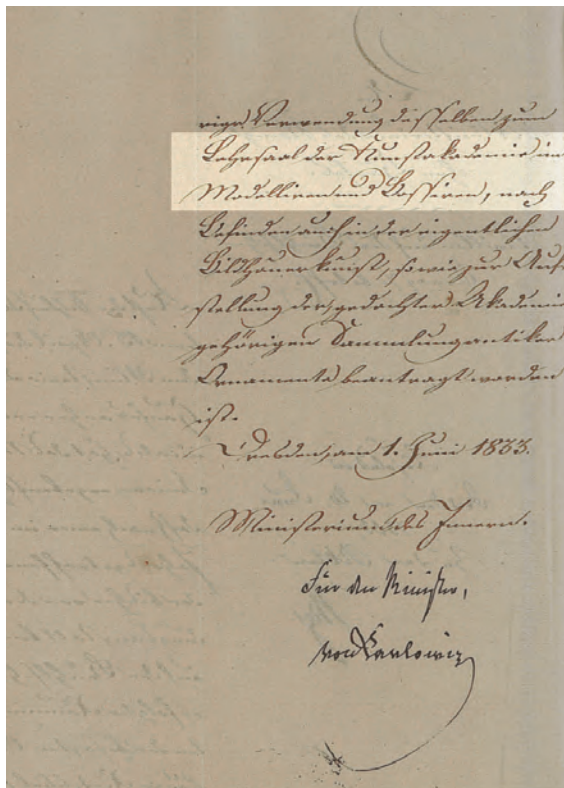 rige Verwendung desselben zum
Lehrsaal der Kunstakademie im
Modelliren und Bossiren, nach
Befinden auch in der eigentlichen
Bildhauerkunst, sowie zur Auf-
stellung der, gedachter Akademie
gehörigen Sammlung antiker
Ornamente beantragt worden
ist.
Dresden, am 1. Juni 1883.
Ministerium des Innern.
Für den Minister,
von Carlowiz